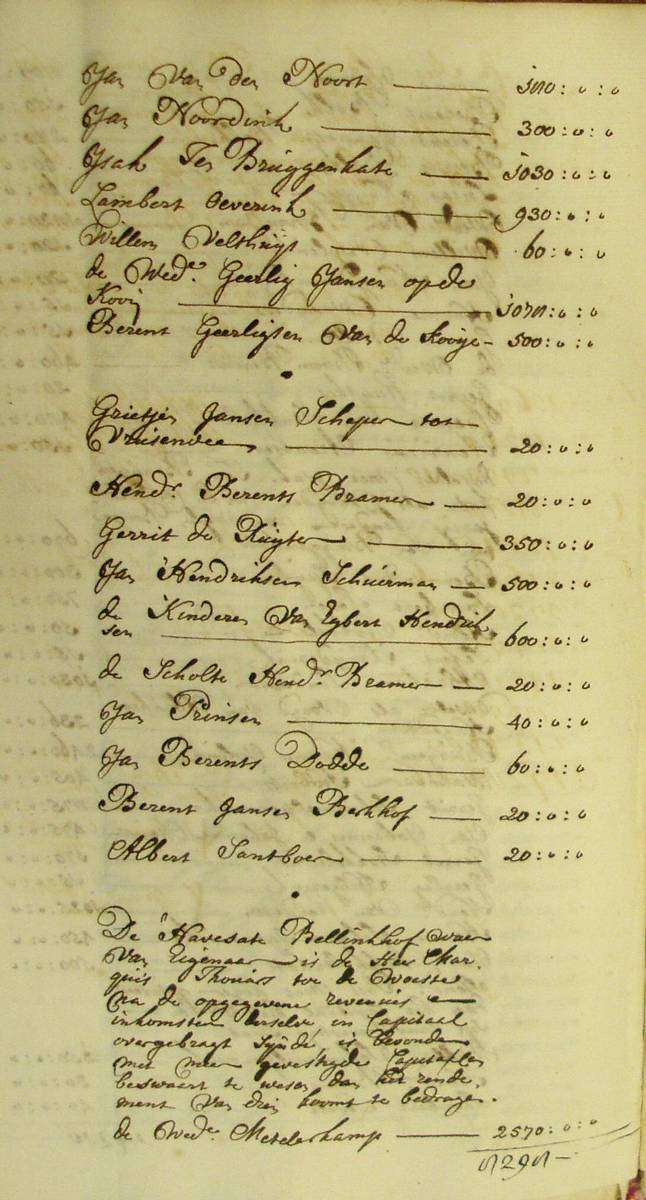 Jan Van den Noort
Jan Noordink 300:0:0
Isak Ter Bruggenkate 1030:0:0
Lambert Oeverink 930:0:0
Willem Velthuijs 60:0:0
de Wed.e Geerlig Jansen op de
Kooij
Berent Geerligsen Van de Kooije 500:0:0
Grietjen Jansen Scheper tot
Vriesenvee 20:0:0
Hend.r Berents Bramer 20:0:0
Gerrit de Ruijter 350:0:0
Jan Hendriksen Schuirman 500:0:0
de Kinderen Van Egbert Hendrik
sen 600:0:0
de Scholte Hend.r Bramer 20:0:0
Jan Prinsen 40:0:0
Jan Berents Dodde 60:0:0
Berent Jansen Berkhof 20:0:0
Albert Santboer 20:0:0
De Havesate Bellinkhof waer
Van Eigenaer is de Heer Mar
quis Thouars tot de Woeste
na de opgegevene revenuis en
inkomsten derselve in Capitaal
overgebragt sijnde, is bevonden
met meer gevestigde Capitalen
beswaert te wesen dan het rende
ment van dien koomt te bedragen.
de Wed.e Metelerkamp 2570:0:0